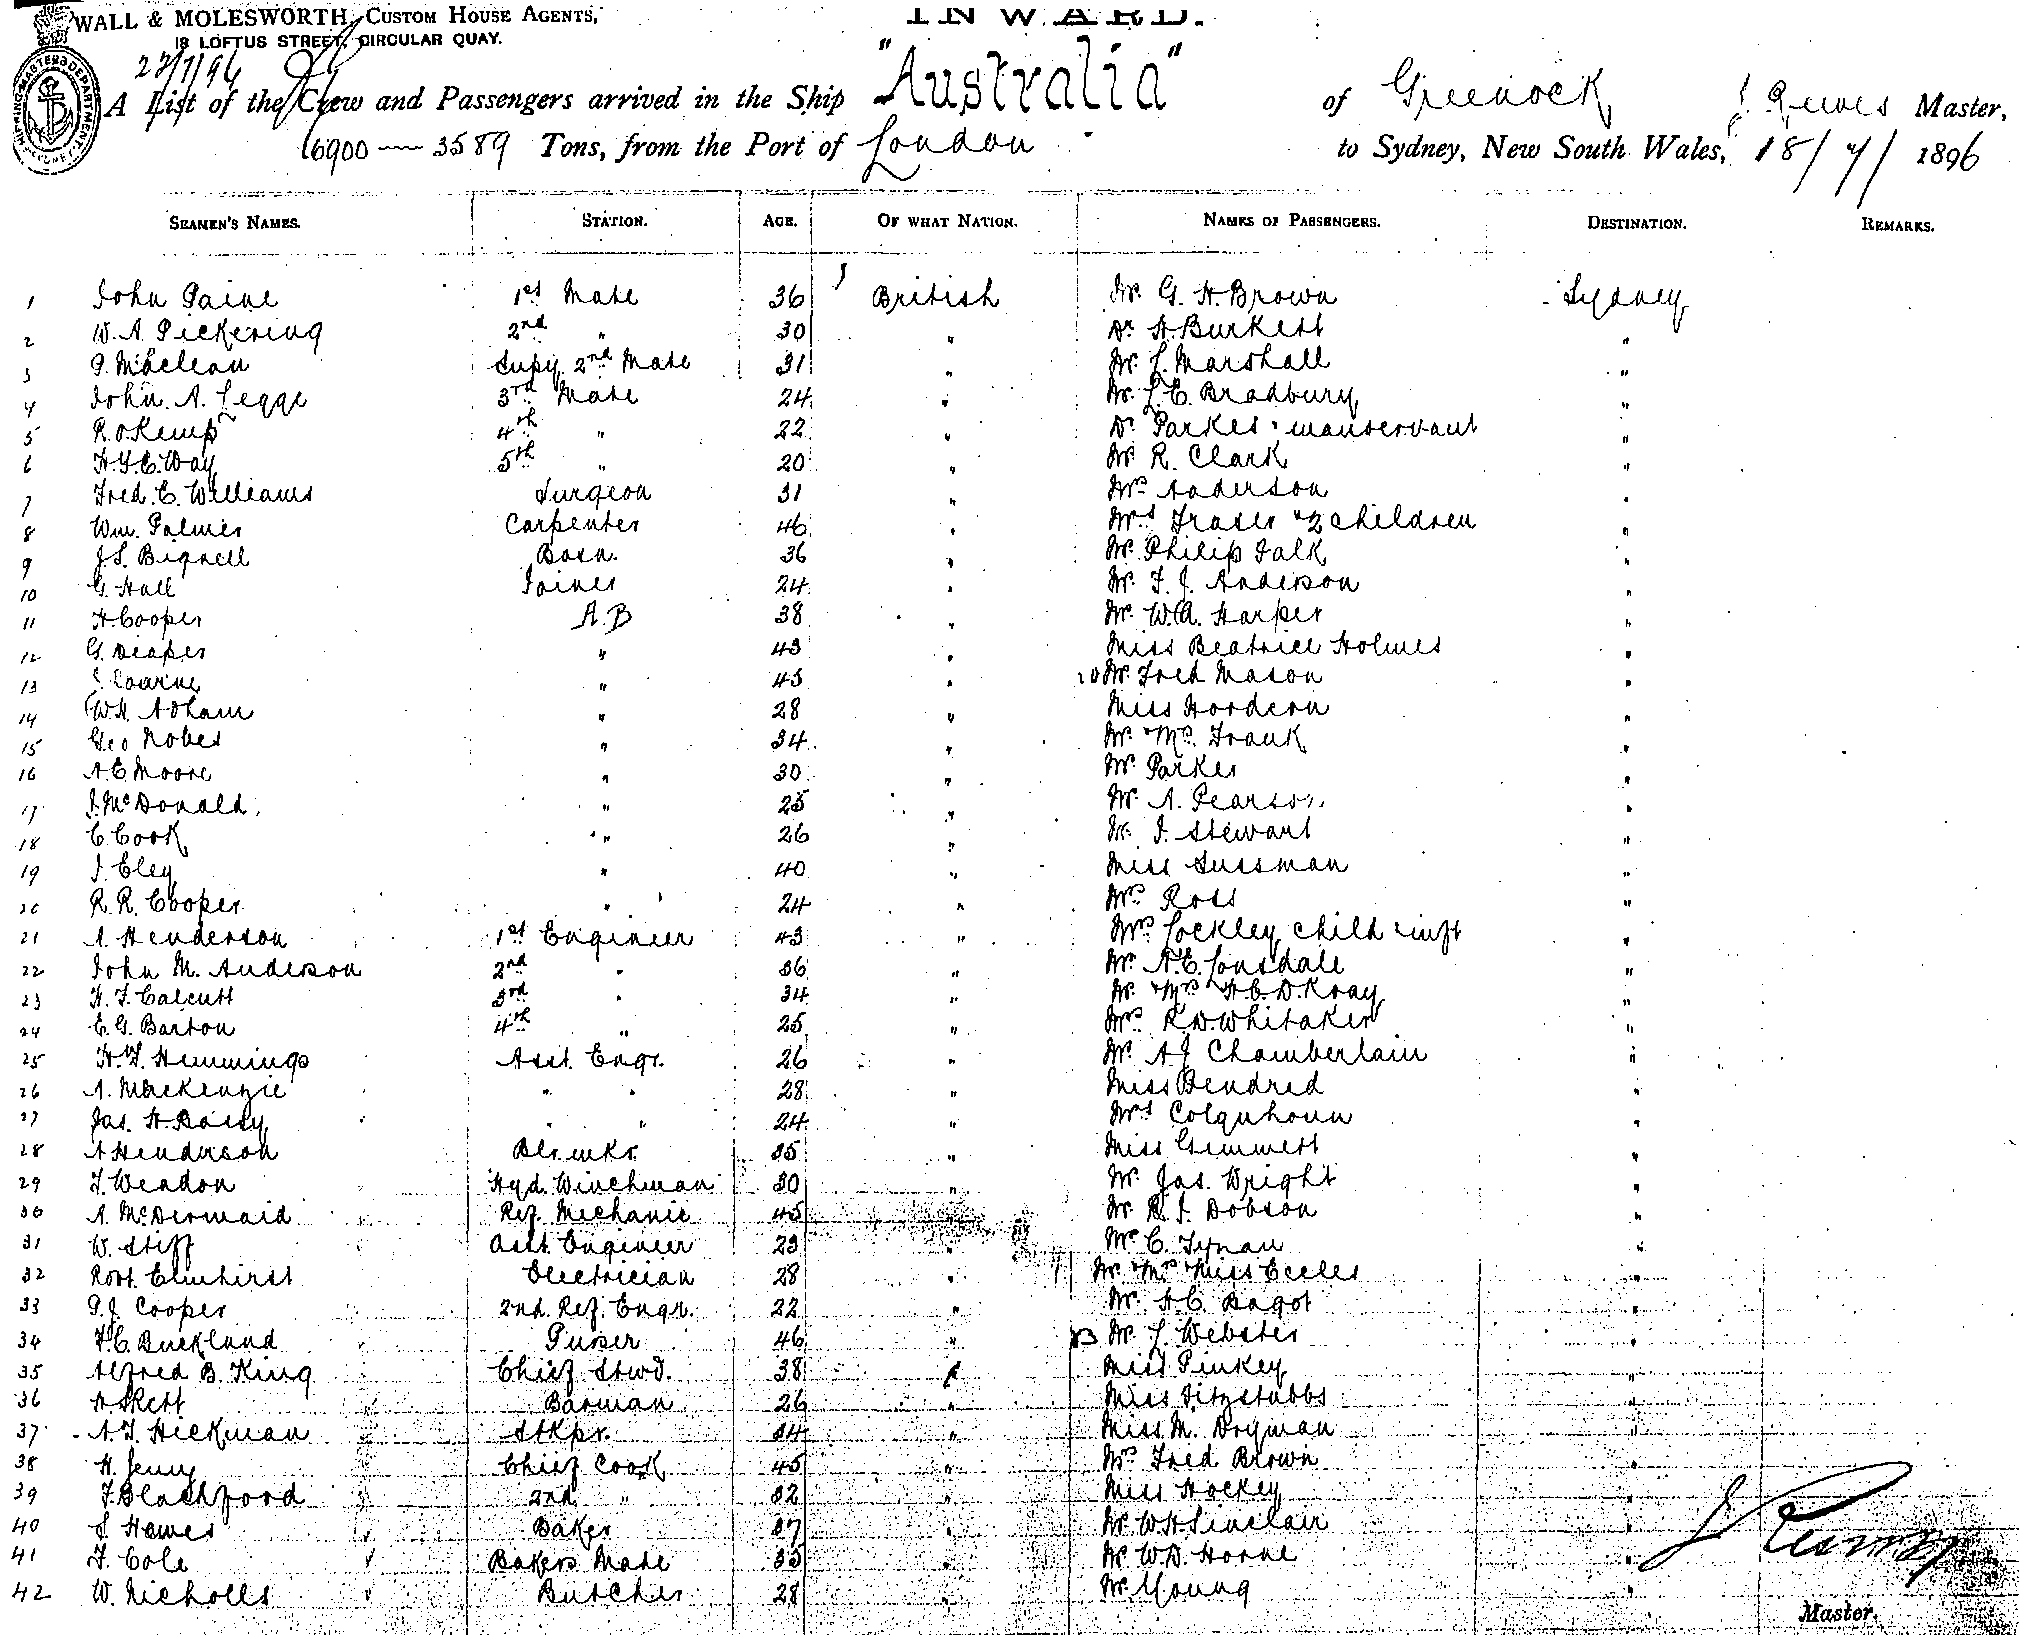 WALL & MOLESWORTH, CUSTOM HOUSE AGENTS,
INWARD.
18 LOFTUS STREET, CIRCULAR QUAY.
A List of the Crew and Passengers arrived in the Ship "Australia" of Greenock J. Reeves Master,
6900 — 3589 Tons, from the Port of London to Sydney, New South Wales, 18/7/1896
SEAMEN'S NAMES. STATION. AGE. OF WHAT NATION. NAMES OF PASSENGERS. DESTINATION. REMARKS.
1 John Paine 1st Mate 36 British Mr. G. H. Brown Sydney
2 W. A. Pickering 2nd " 30 " Dr H Burkett "
3 Maclean Supy 2nd Mate 31 " Mr. L. Marshall "
4 John. A. Legge 3rd Mate 24 " Mr. L. C. Bradbury "
5 R. O. Kemp 4th " 22 " Dr Parkes & manservant "
6 Way 5th " 20 " Mr R. Clark "
7 Fred. C. Williams Surgeon 31 " Mrs Anderson "
8 Wm. Palmer Carpenter 46 " Mrs Fraser & 2 children "
9 J. S. Bignell Bosn. 36 " Mr Philip Falk "
10 G. Hall Joiner 24 " Mr. F. J. Anderson "
11 H Cooper A.B 38 " Mr. W. A. Harper "
12 G. Draper " 43 " Miss Beatrice Holmes "
13 " 45 " Mr. Fred Mason "
14 W. H. Adham " 28 " Miss Hordern "
15 Geo Nobes " 34 " Mr & Mrs. Frank "
16 A. E. Moore " 30 " Mr Parker "
17 J. McDonald " 25 " Mr. A. Pearson "
18 C. Cook " 26 " Mr. J. Stewart "
19 J. Eley " 40 " Miss Sussman "
20 R. R. Cooper " 24 " Mrs Ross "
21 A. Henderson 1st Engineer 43 " Mrs Lockley, child & inft "
22 John M. Anderson 2nd " 36 " Mr. A. E. Lonsdale "
23 H. F. Calcutt 3rd " 34 " Mr & Mrs H. C. D. Kray "
24 E. G. Barton 4th " 25 " Mrs R. W. Whitaker "
25 Hemmings Asst. Engr. 26 " Mr. A J Chamberlain "
26 A. Mackenzie " " 28 " Miss Bendred "
27 Jas. H. " " 24 " Mrs Colquhoun "
28 A Henderson Blrmkr. 35 " Miss Gimmett "
29 F. Weadon Hyd. Winchman 30 " Mr. Jas. Wright "
30 A. McDermaid Ref. Mechanic 45 " Mr R. J. Dobson "
31 W. Stiff Asst. Engineer 23 " C. Tynan "
32 Robt. Elmhirst Electrician 28 " Mr. Mrs & Miss Eccles "
33 P. J. Cooper 2nd. Ref. Engr. 22 " Mr. H. C. Bagot "
34 F. C. Buckland Purser 46 " Mr. L. Webster "
35 Alfred B. King Chief Stwd. 38 " Miss Pinkey "
36 H Skett Barman 26 " Miss Fitzstubbs "
37 A. F. Hickman Stkpr. 34 " Miss. M. Dryman "
38 H. Jenny Chief Cook 45 " Mrs Fred Brown "
39 F. Blachford 2nd " 32 " Miss Hockey "
40 Hawes Baker 37 " Mr. W. H. Sinclair "
41 F. Cole Bakers Mate 35 " Mr. W. D. Horne "
42 W. Nicholls Butcher 28 " Mr. Young "
Master.